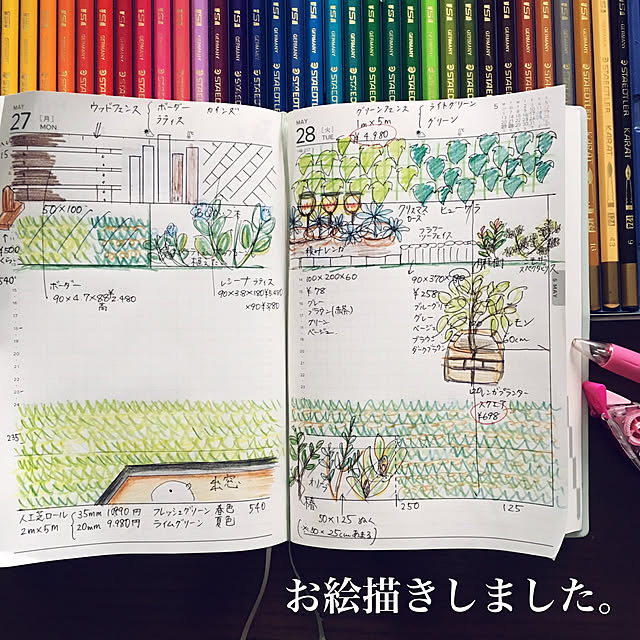 STAEDTLER
GERMANY
KARAT
MAY
27
[月]
MON
ウッドフェンス
ボーダー
ラティス
カインズ
50×100
540
ボーダー
90×4.7×88 ¥2480
高
レシーナ ラティス
90×38×180 ¥5490
×90 ¥380
235
本窓
人工芝ロール
2m×5m
35mm 10890円 フレッシュグリーン 春色
20mm 9.980円 ライムグリーン 夏色
540
MAY
28
[火]
TUE
グリーンフェンス
1m×5m
¥4.980
ライトグリーン
グリーン
クリスマス
ローズ
ヒューケラ
フラワー
積みレンガ
100×200×60
¥78
グレー
ブラウン(赤茶)
グリーン
ベージュ
90×370×
¥258
ブルーグリ
グレー
ベージュ
ブラウン
ダークブラウン
レモン
60cm
レンガプランター
スクエア
¥698
オリーブ
椿
50×125
250
125
5 MAY
お絵描きしました。